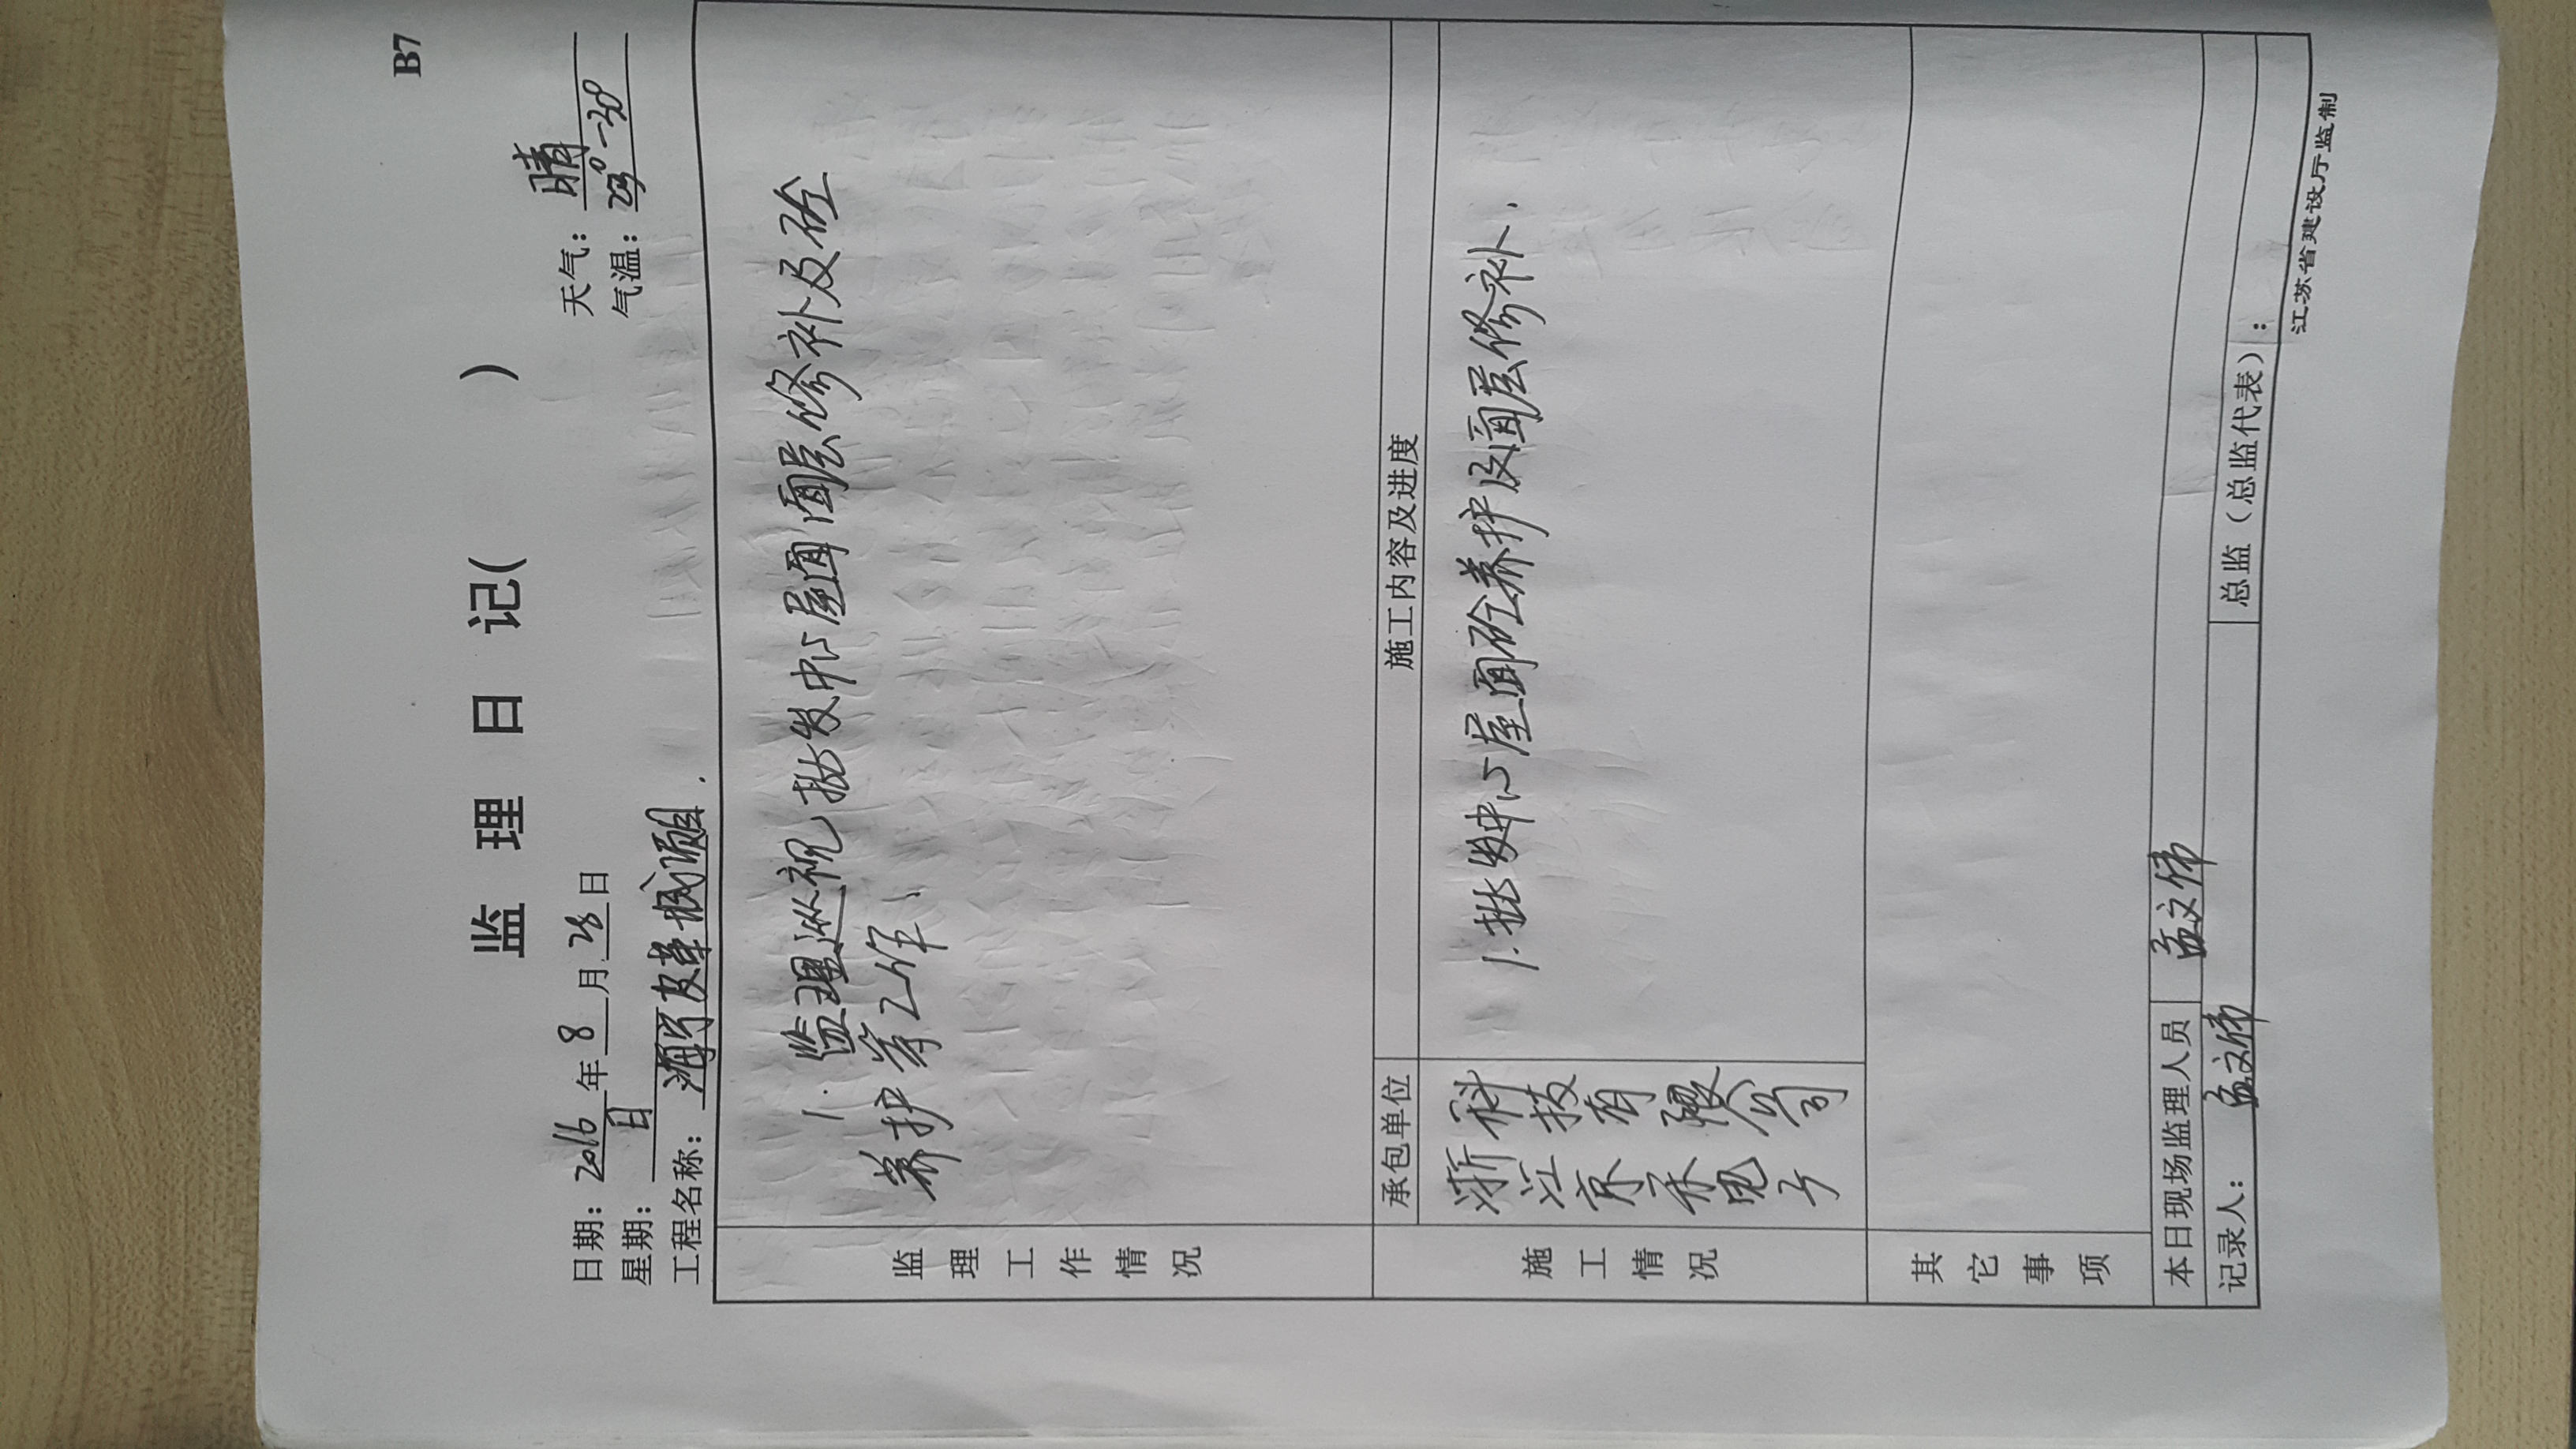 B7
监 理 日 记( )
日期：2016年8月28日 天气：晴
星期：日 气温：23°-30°
工程名称：海宁皮革城项目.
监理工作情况
1.监理巡视批发中心屋面面层修补及砼
养护等工作.
施工情况
承包单位 施工内容及进度
浙江京禾电子
科技有限公司
1.批发中心屋面砼养护及面层修补.
其它事项
本日现场监理人员 孟文伟
记录人：孟文伟 总监（总监代表）：
江苏省建设厅监制